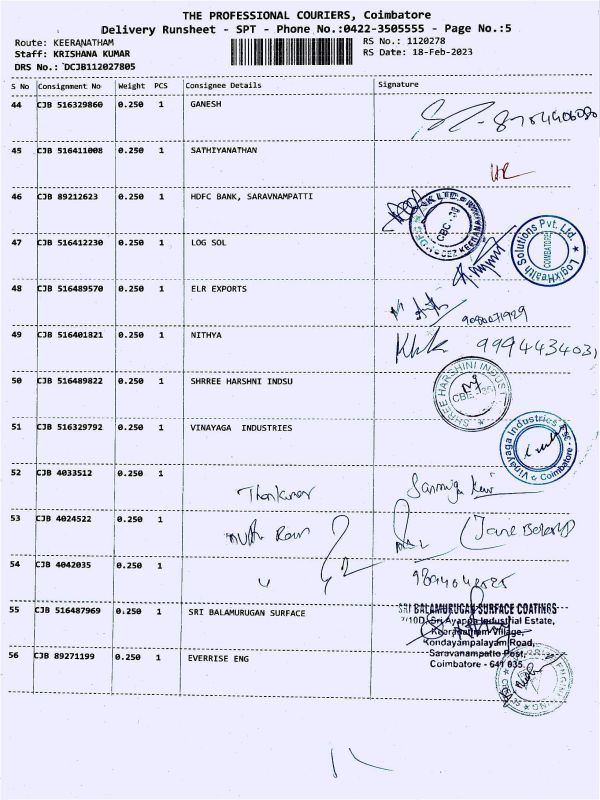 THE PROFESSIONAL COURIERS, Coimbatore
Delivery Runsheet - SPT - Phone No.:0422-3505555 - Page No.:5
Route: KEERANATHAM RS No.: 1120278
Staff: KRISHANA KUMAR RS Date: 18-Feb-2023
DRS No.: DCJB112027805
S No Consignment No Weight PCS Consignee Details Signature
44 CJB 516329860 0.250 1 GANESH
45 CJB 516411008 0.250 1 SATHIYANATHAN
46 CJB 89212623 0.250 1 HDFC BANK, SARAVNAMPATTI
47 CJB 516412230 0.250 1 LOG SOL
LogixHealth Solutions Pvt. Ltd. COIMBATORE
48 CJB 516489570 0.250 1 ELR EXPORTS
9080071929
49 CJB 516401821 0.250 1 NITHYA
9994434031
50 CJB 516489822 0.250 1 SHRREE HARSHNI INDSU
SHREE HARSHINI INDUST
51 CJB 516329792 0.250 1 VINAYAGA INDUSTRIES
Vinayaga Industries Coimbatore
52 CJB 4033512 0.250 1
53 CJB 4024522 0.250 1
54 CJB 4042035 0.250 1
55 CJB 516487969 0.250 1 SRI BALAMURUGAN SURFACE
SRI BALAMURUGAN SURFACE COATINGS
7/10D, Sri Ayappa Industrial Estate,
Keeranatham Village,
Kondayampalayam Road,
Saravanampatto Post,
Coimbatore - 641 035.
56 CJB 89271199 0.250 1 EVERRISE ENG